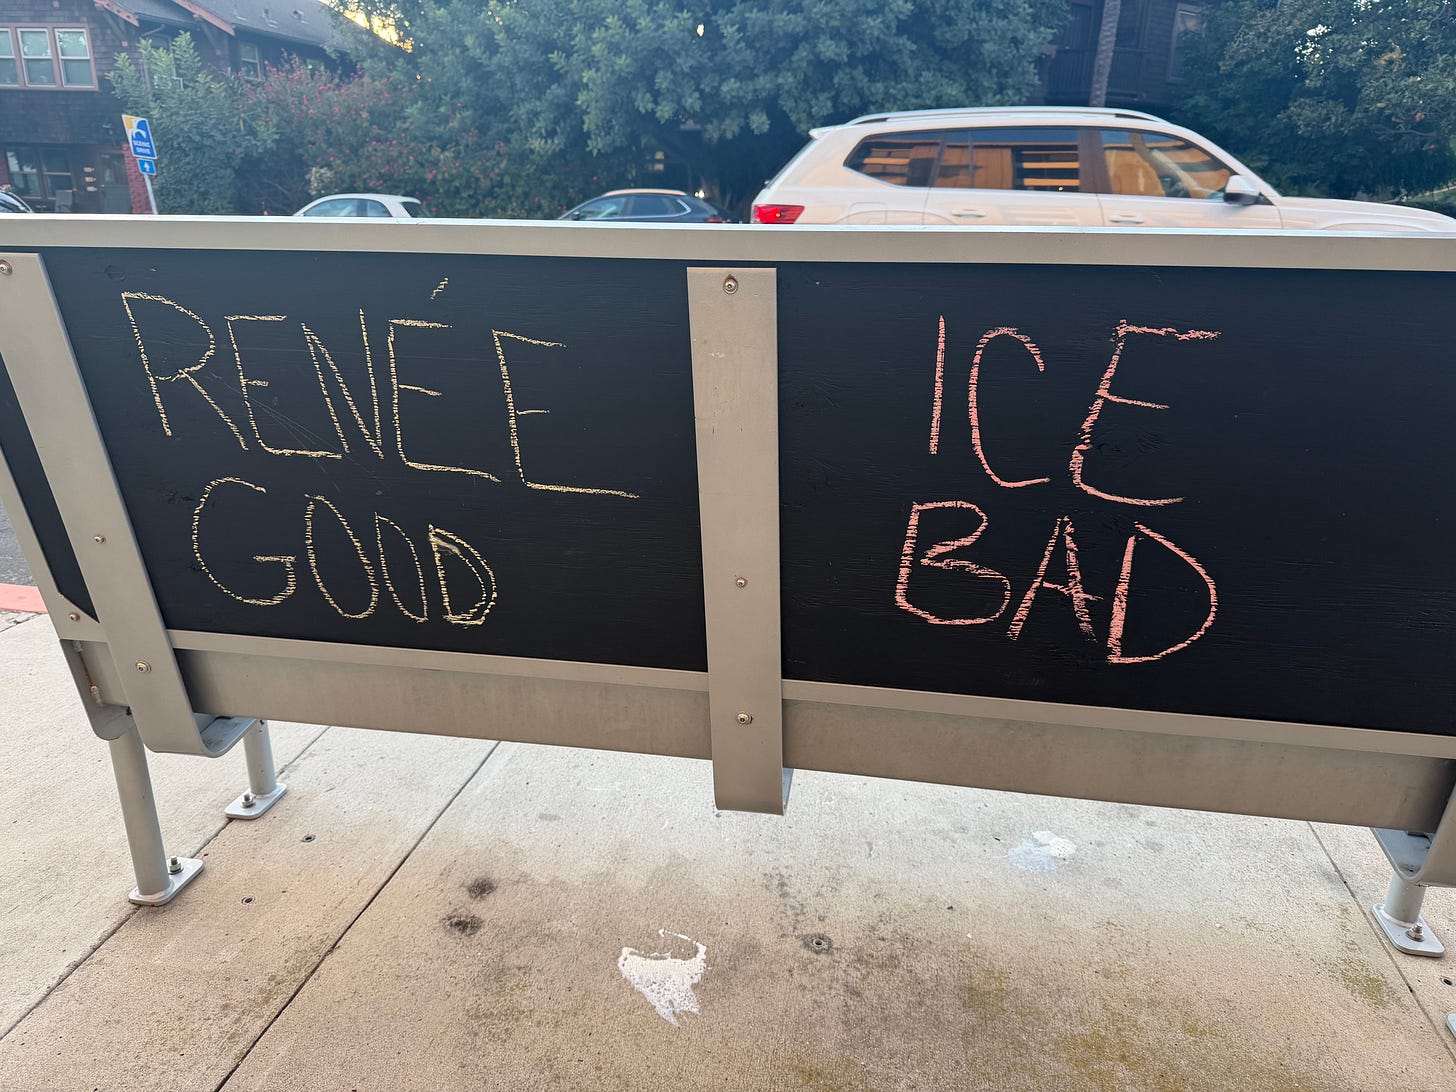 SCENIC
DRIVE
RENÉE
GOOD
ICE
BAD